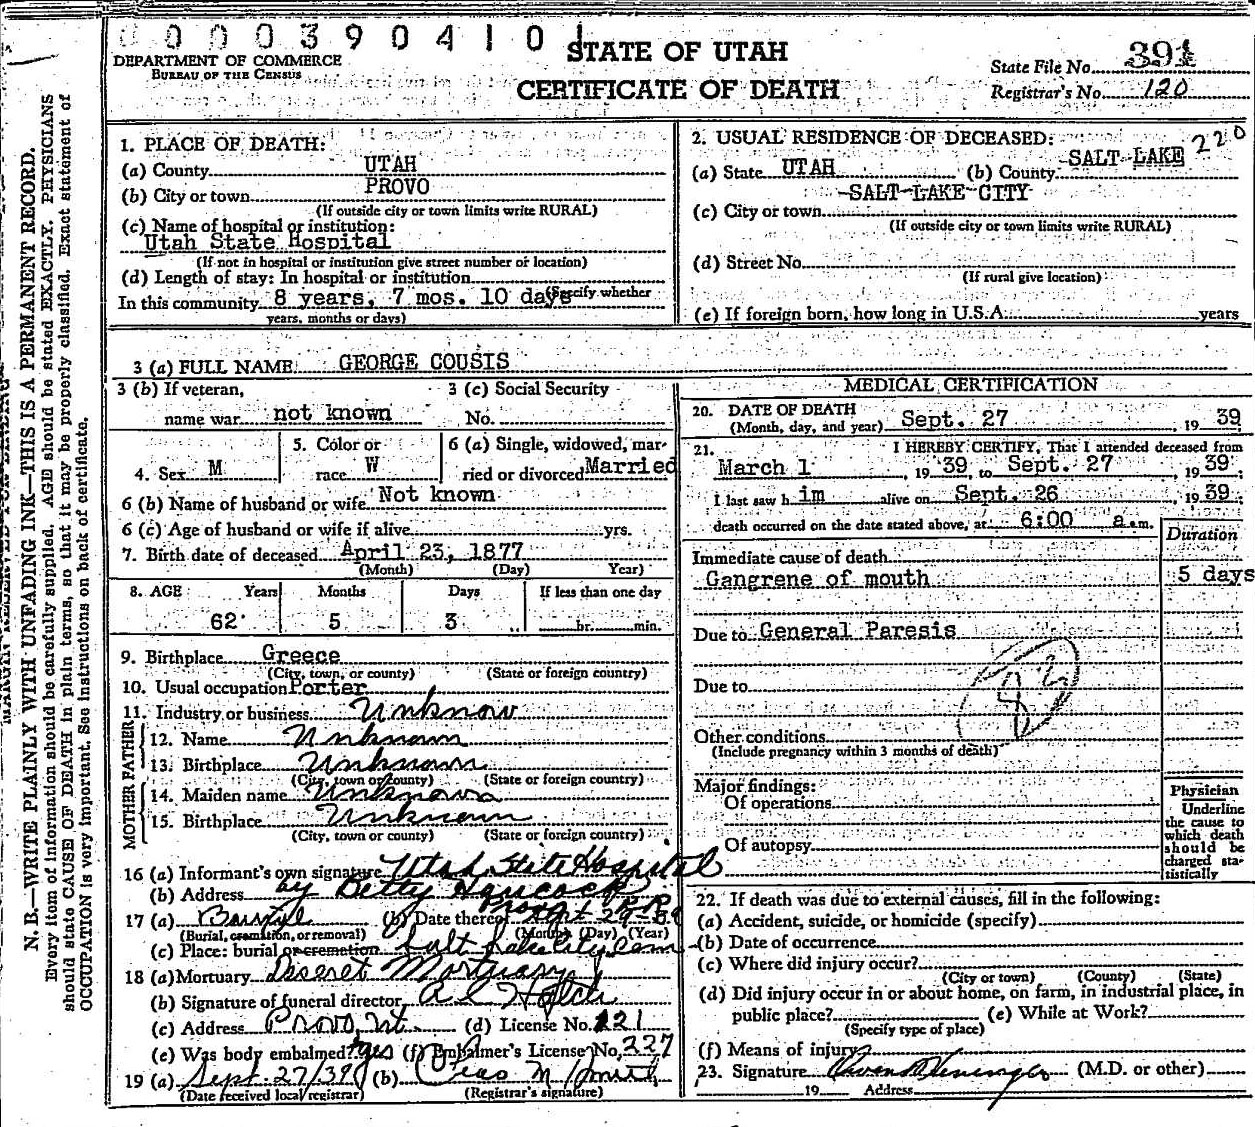 000390410
DEPARTMENT OF COMMERCE
BUREAU OF THE CENSUS
STATE OF UTAH
CERTIFICATE OF DEATH
State File No. 391
Registrar's No. 120
N. B.—WRITE PLAINLY WITH UNFADING INK—THIS IS A PERMANENT RECORD.
Every item of information should be carefully supplied. AGE should be stated EXACTLY. PHYSICIANS
should state CAUSE OF DEATH in plain terms, so that it may be properly classified. Exact statement of
OCCUPATION is very important. See instructions on back of certificate.
1. PLACE OF DEATH:
(a) County UTAH
(b) City or town PROVO
(If outside city or town limits write RURAL)
(c) Name of hospital or institution:
Utah State Hospital
(If not in hospital or institution give street number or location)
(d) Length of stay: In hospital or institution
(Specify whether
In this community 8 years, 7 mos. 10 days
years, months or days)
2. USUAL RESIDENCE OF DECEASED: 220
(a) State UTAH (b) County SALT LAKE
SALT LAKE CITY
(c) City or town
(If outside city or town limits write RURAL)
(d) Street No.
(If rural give location)
(e) If foreign born, how long in U.S.A. years
3 (a) FULL NAME GEORGE COUSIS
3 (b) If veteran,
name war not known
3 (c) Social Security
No.
4. Sex M
5. Color or
race W
6 (a) Single, widowed, mar-
ried or divorced Married
6 (b) Name of husband or wife Not known
6 (c) Age of husband or wife if alive yrs.
7. Birth date of deceased April 23, 1877
(Month) (Day) Year)
8. AGE Years Months Days If less than one day
62 5 3 hr. min.
9. Birthplace Greece
(City, town, or county) (State or foreign country)
10. Usual occupation Porter
11. Industry or business Unknow
FATHER
12. Name Unknown
13. Birthplace Unknown
(City, town or county) (State or foreign country)
MOTHER
14. Maiden name Unknown
15. Birthplace Unknown
(City, town or county) (State or foreign country)
16 (a) Informant's own signature Utah State Hospital
(b) Address by Betty Hancock
Provo
17 (a) Burial (b) Date thereof Sept 29-39
(Burial, cremation, or removal) (Month) (Day) (Year)
(c) Place: burial or cremation Salt Lake City Cem
18 (a) Mortuary Deseret Mortuary
(b) Signature of funeral director
(c) Address Provo, Ut. (d) License No. 221
(e) Was body embalmed? yes (f) Embalmer's License No. 227
19 (a) Sept. 27/39 (b) Chas M Smith
(Date received local registrar) (Registrar's signature)
MEDICAL CERTIFICATION
20. DATE OF DEATH
(Month, day, and year) Sept. 27, 1939
21. I HEREBY CERTIFY, That I attended deceased from
March 1, 1939, to Sept. 27, 1939.
I last saw him alive on Sept. 26, 1939.
death occurred on the date stated above, at 6:00 a.m.
Duration
Immediate cause of death
Gangrene of mouth 5 days
Due to General Paresis
Due to
Other conditions
(Include pregnancy within 3 months of death)
Major findings:
Of operations
Of autopsy
Physician
Underline
the cause to
which death
should be
charged sta-
tistically
22. If death was due to external causes, fill in the following:
(a) Accident, suicide, or homicide (specify)
(b) Date of occurrence
(c) Where did injury occur?
(City or town) (County) (State)
(d) Did injury occur in or about home, on farm, in industrial place, in
public place? (e) While at Work?
(Specify type of place)
(f) Means of injury
23. Signature (M.D. or other)
19 Address